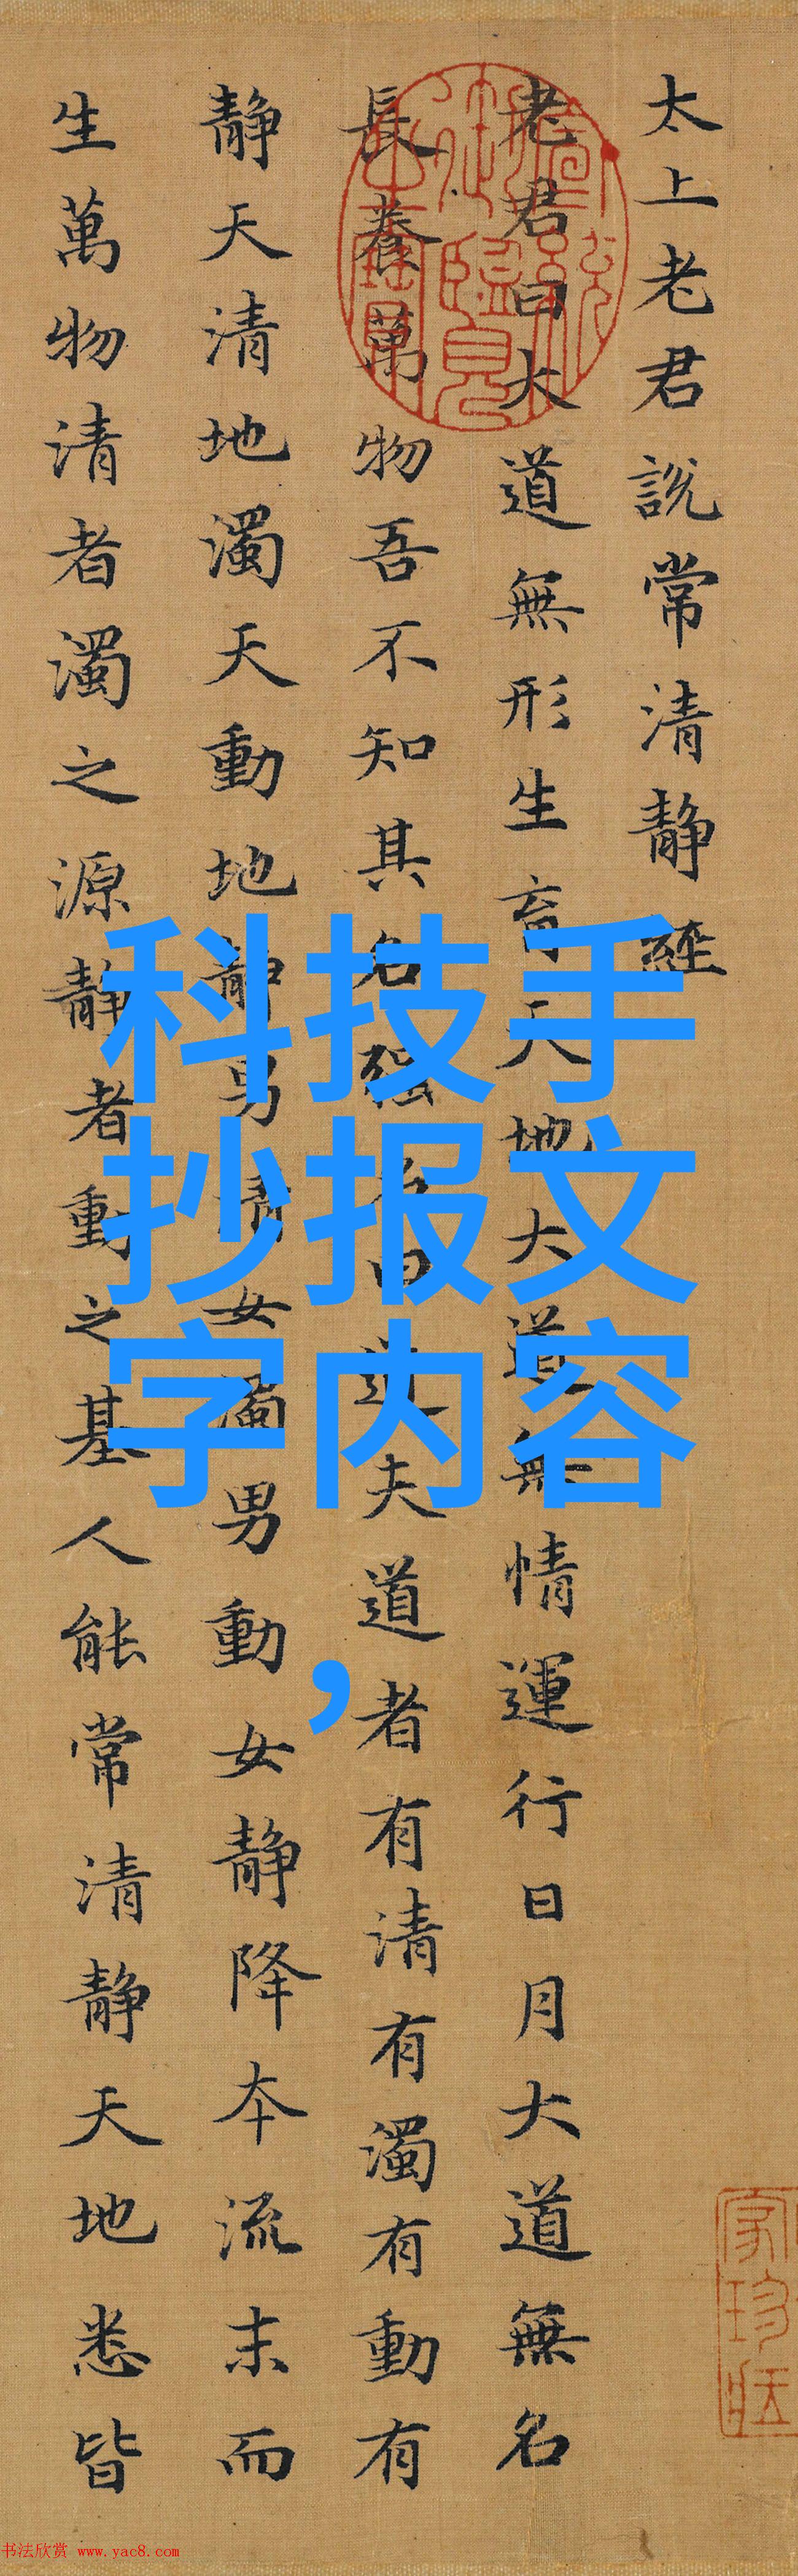 太上老君說常清靜經
老君曰大道無形生育天地大道無情運行日月大道無名
長養萬物吾不知其名強名曰道夫道者有清有濁有動有
靜天清地濁天動地靜男清女濁男動女靜降本流末而
生萬物清者濁之源靜者動之基人能常清靜天地悉皆
科技手
抄报文
字内容
，
书法欣赏 www.yac8.com